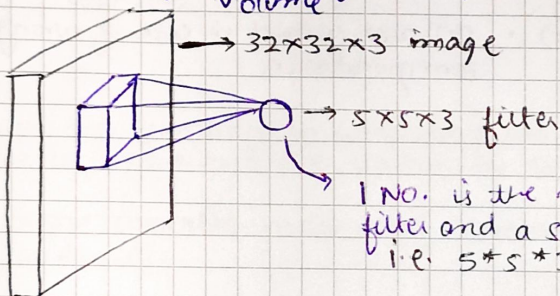 volume
32×32×3 image
5×5×3 filter
1 No. is the
filter and a
i.e. 5*5*